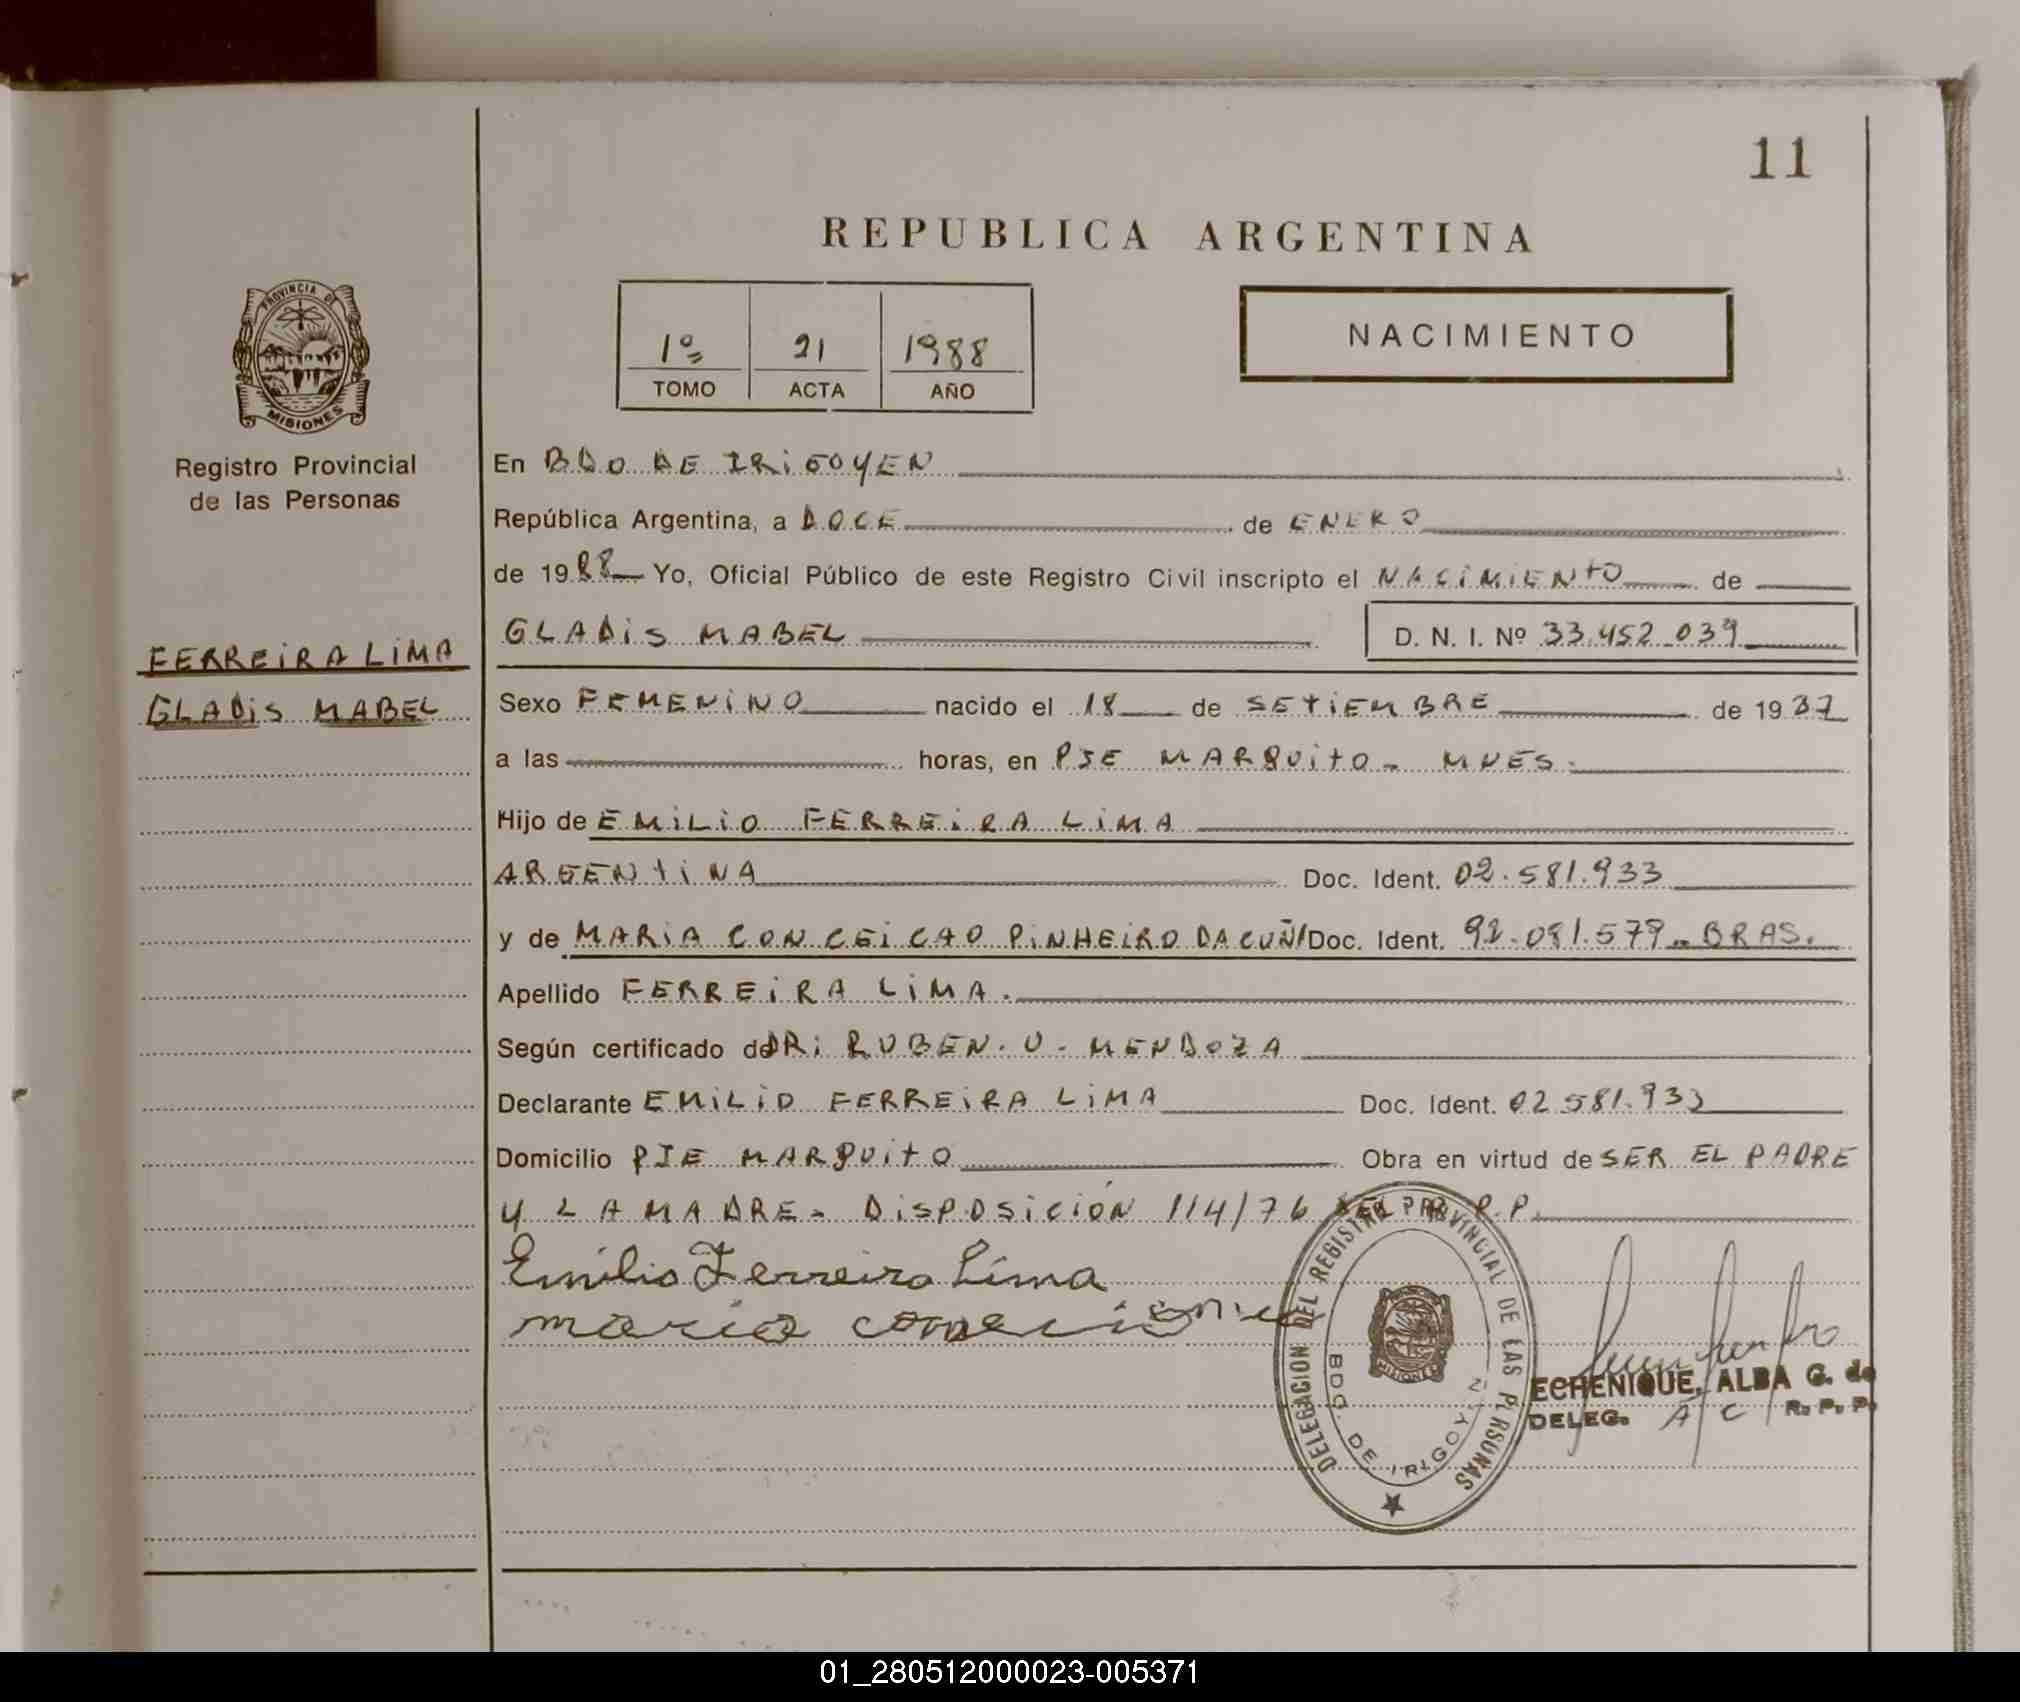 11
REPUBLICA ARGENTINA
PROVINCIA DE
MISIONES
Registro Provincial
de las Personas
1º 21 1988
TOMO ACTA AÑO
NACIMIENTO
FERREIRA LIMA
GLADIS MABEL
En BDO DE IRIGOYEN
República Argentina, a DOCE de ENERO
de 1988 Yo, Oficial Público de este Registro Civil inscripto el NACIMIENTO de
GLADIS MABEL D. N. I. Nº 33.452.039
Sexo FEMENINO nacido el 18 de SETIEMBRE de 1987
a las horas, en PJE MARQUITO - MNES.
Hijo de EMILIO FERREIRA LIMA
ARGENTINA Doc. Ident. 02.581.933
y de MARIA CONCEICAO PINHEIRO DA CUÑ/ Doc. Ident. 92.081.579 - BRAS.
Apellido FERREIRA LIMA.
Según certificado de DR: RUBEN. O. MENDOZA
Declarante EMILIO FERREIRA LIMA Doc. Ident. 02.581.933
Domicilio PJE MARQUITO Obra en virtud de SER EL PADRE
Y LA MADRE - DISPOSICIÓN 114/76 DEL R.P.P.
Emilio Ferreira Lima
maria
DELEGACION DEL REGISTRO PROVINCIAL DE LAS PERSONAS
BDO. DE IRIGOYEN
MISIONES
ECHENIQUE, ALBA G. de
DELEG. A/C R. P. P.
01_280512000023-005371